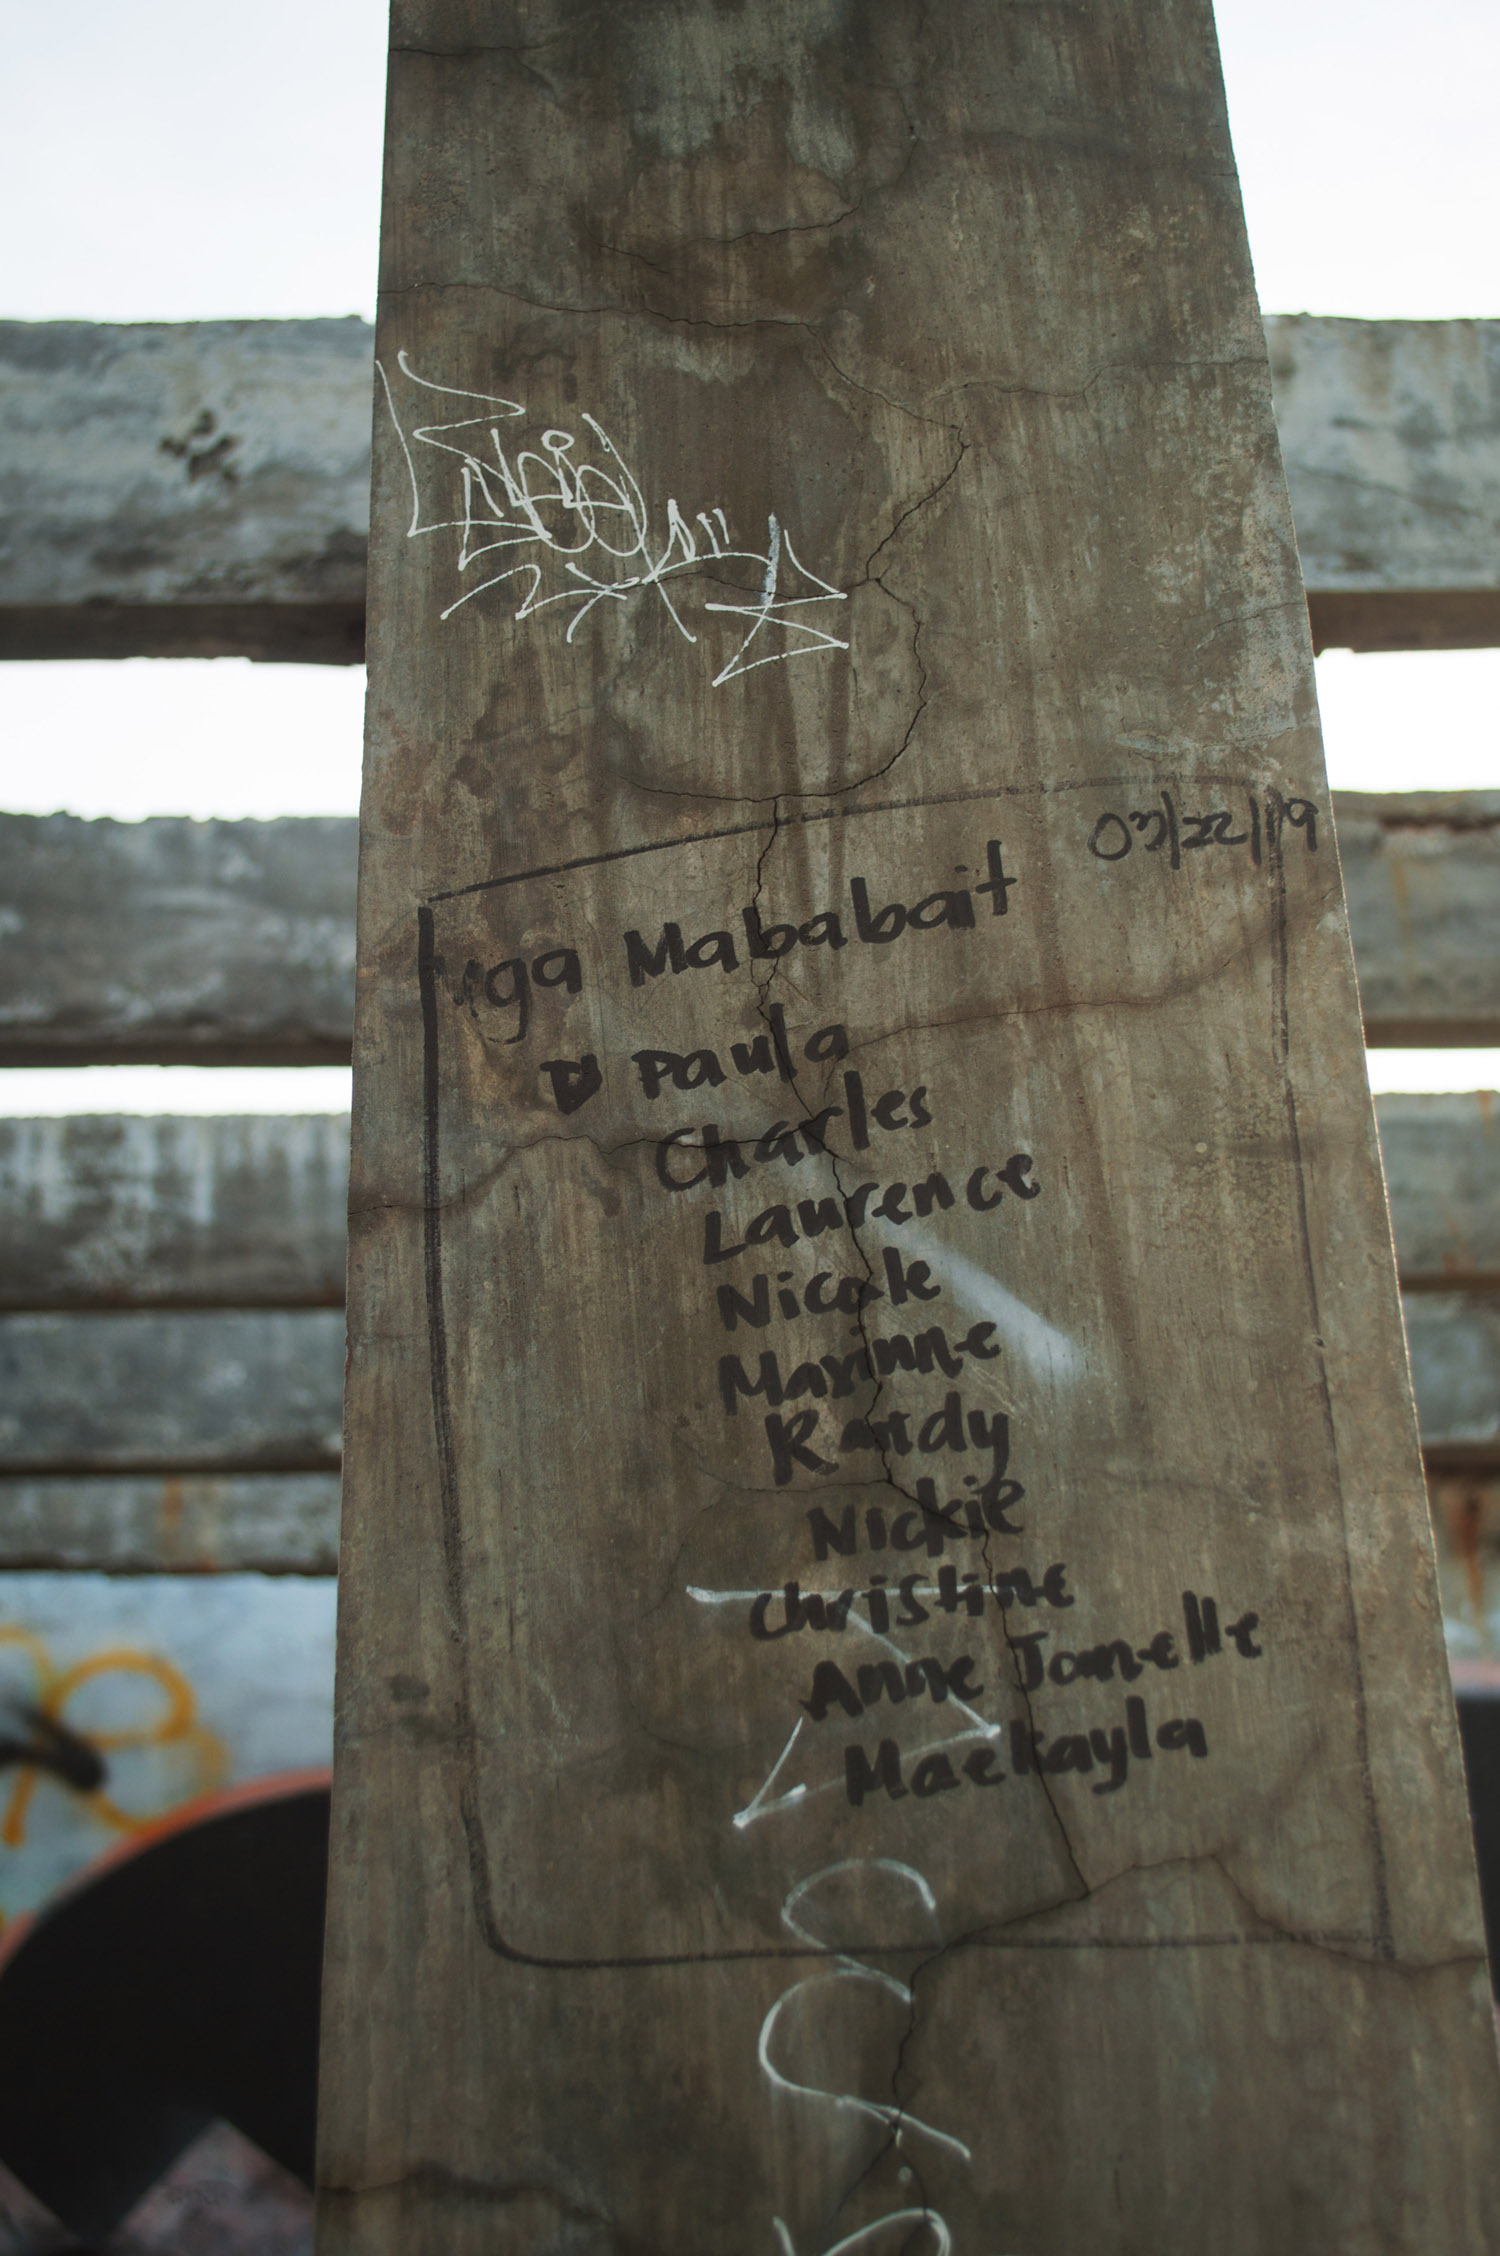 03/22/19
Mga Mababait
Paula
Charles
Laurence
Nicole
Marinne
Randy
Nickie
Christine
Anne Jamelle
Maekayla